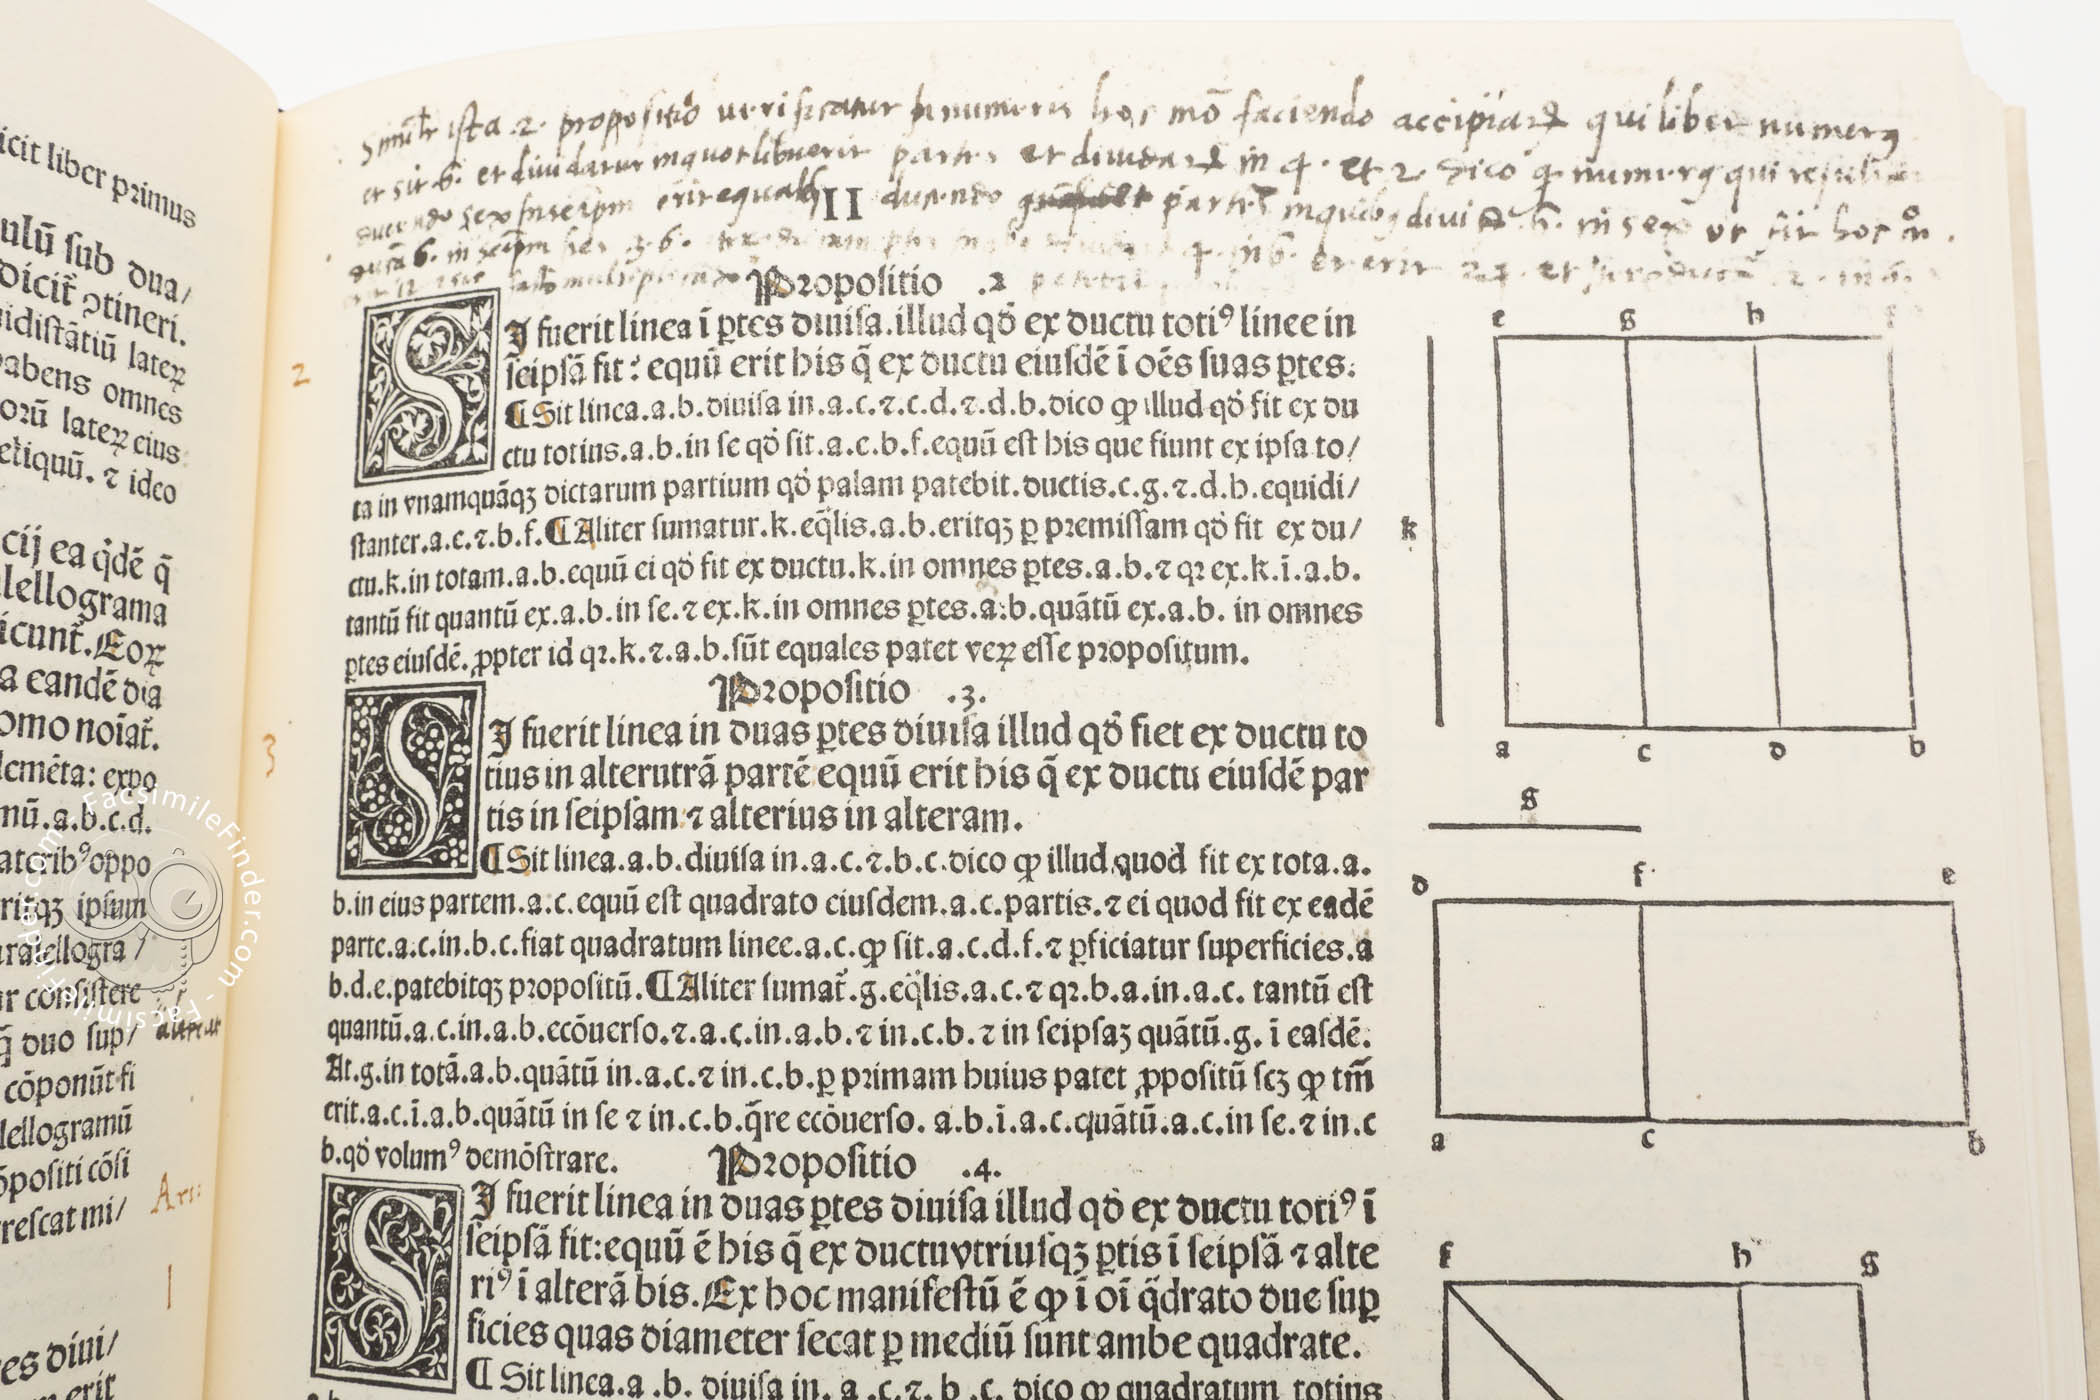 icit liber primus
ulū sub dua/
dicit̄ ꝯtineri.
uidistātiū lateꝝ
abens omnes
oꝛū lateꝝ eius
etiquū. ⁊ ideo
cij ea q̇dē q̄
llellograma
icunt̄. Eoꝝ
a eandē dia
omo noīat̄.
lemēta: expo
nū.a.b.c.d.
aterib⁹ oppo
ritqꝫ ipsum
aralellogra/
ur consistere
q̄ duo sup/
cōponūt fi
lellogramū
ōpositi cōsi
rescat mi/
es diui/
erit
Simil'r ista .2. propositio verificatur in numeris hoc mō faciendo accipiat̄ quilibet numerꝰ
et sit .6. et diuidatur in quotlibuerit partes et diuidat̄ in 4. et 2 dico ꝙ numerꝰ qui
ducendo sex in seipm erit equalis II ducendo partes in quibꝰ diuidit̄ 6. in sex ut sit hoc mō.
6. in seipm 36. 4. in 6. et erit 24. et 2. in 6.
Propositio .2
2
SI fuerit linea ī ꝑtes diuisa.illud qḋ ex ductu toti⁹ linee in
seipsā fit: equū erit his q̄ ex ductu eiusdē ī oēs suas ꝑtes.
¶ Sit linea.a.b.diuisa in.a.c.⁊.c.d.⁊.d.b.dico ꝙ illud qḋ fit ex du
ctu totius.a.b.in se qḋ sit.a.e.b.f.equū est his que fiunt ex ipsa to/
ta in vnamquāqꝫ dictarum partium qḋ palam patebit.ductis.c.g.⁊.d.h.equidi/
stanter.a.e.⁊.b.f.¶ Aliter sumatur.k.eq̄lis.a.b.eritqꝫ ꝑ pꝛemissam qḋ fit ex du/
ctu.k.in totam.a.b.equū ei qḋ fit ex ductu.k.in omnes ꝑtes.a.b.⁊ qꝛ ex.k.ī.a.b.
tantū fit quantū ex.a.b.in se.⁊ ex.k.in omnes ꝑtes.a.b.quātū ex.a.b. in omnes
ꝑtes eiusdē.ꝓpter id qꝛ.k.⁊.a.b.sūt equales patet veꝝ esse pꝛopositum.
Propositio .3.
3
SI fuerit linea in duas ꝑtes diuisa illud qḋ fiet ex ductu to
tius in alterutrā partē equū erit his q̄ ex ductu eiusdē par
tis in seipsam ⁊ alterius in alteram.
¶ Sit linea.a.b.diuisa in.a.c.⁊.b.c.dico ꝙ illud quod fit ex tota.a.
b.in eius partem.a.c.equū est quadrato eiusdem.a.c.partis.⁊ ei quod fit ex eadē
parte.a.c.in.b.c.fiat quadratum linee.a.c.ꝙ sit.a.c.d.f.⁊ ꝑficiatur superficies.a
b.d.e.patebitqꝫ pꝛopositū.¶ Aliter sumat̄.g.eq̄lis.a.c.⁊ qꝛ.b.a.in.a.c. tantū est
quantū.a.c.in.a.b.ecōuerso.⁊.a.c.in.a.b.⁊ in.c.b.⁊ in seipsaꝫ quātū.g. ī easdē.
At.g.in totā.a.b.quātū in.a.c.⁊ in.c.b.ꝑ pꝛimam huius patet ꝓpositū scꝫ ꝙ tm̄
erit.a.c.ī.a.b.quātū in se ⁊ in.c.b.q̄re ecōuerso. a.b.ī.a.c.quātū.a.c.in se.⁊ in.c
b.qḋ volum⁹ demōstrare.
Propositio .4.
SI fuerit linea in duas ꝑtes diuisa illud qḋ ex ductu toti⁹ ī
seipsā fit:equū ē his q̄ ex ductu vtriusqꝫ ꝑtis ī seipsā ⁊ alte
ri⁹ ī alterā bis. Ex hoc manifestū ē ꝙ ī oī q̄drato due suꝑ
ficies quas diameter secat ꝑ mediū sunt ambe quadrate.
¶ Sit linea.a .b. diuisa in. a .c.⁊. b .c. dico ꝙ quadratum totius
e g h f
k
a c d b
g
d f e
a c b
f h g
FacsimileFinder.com